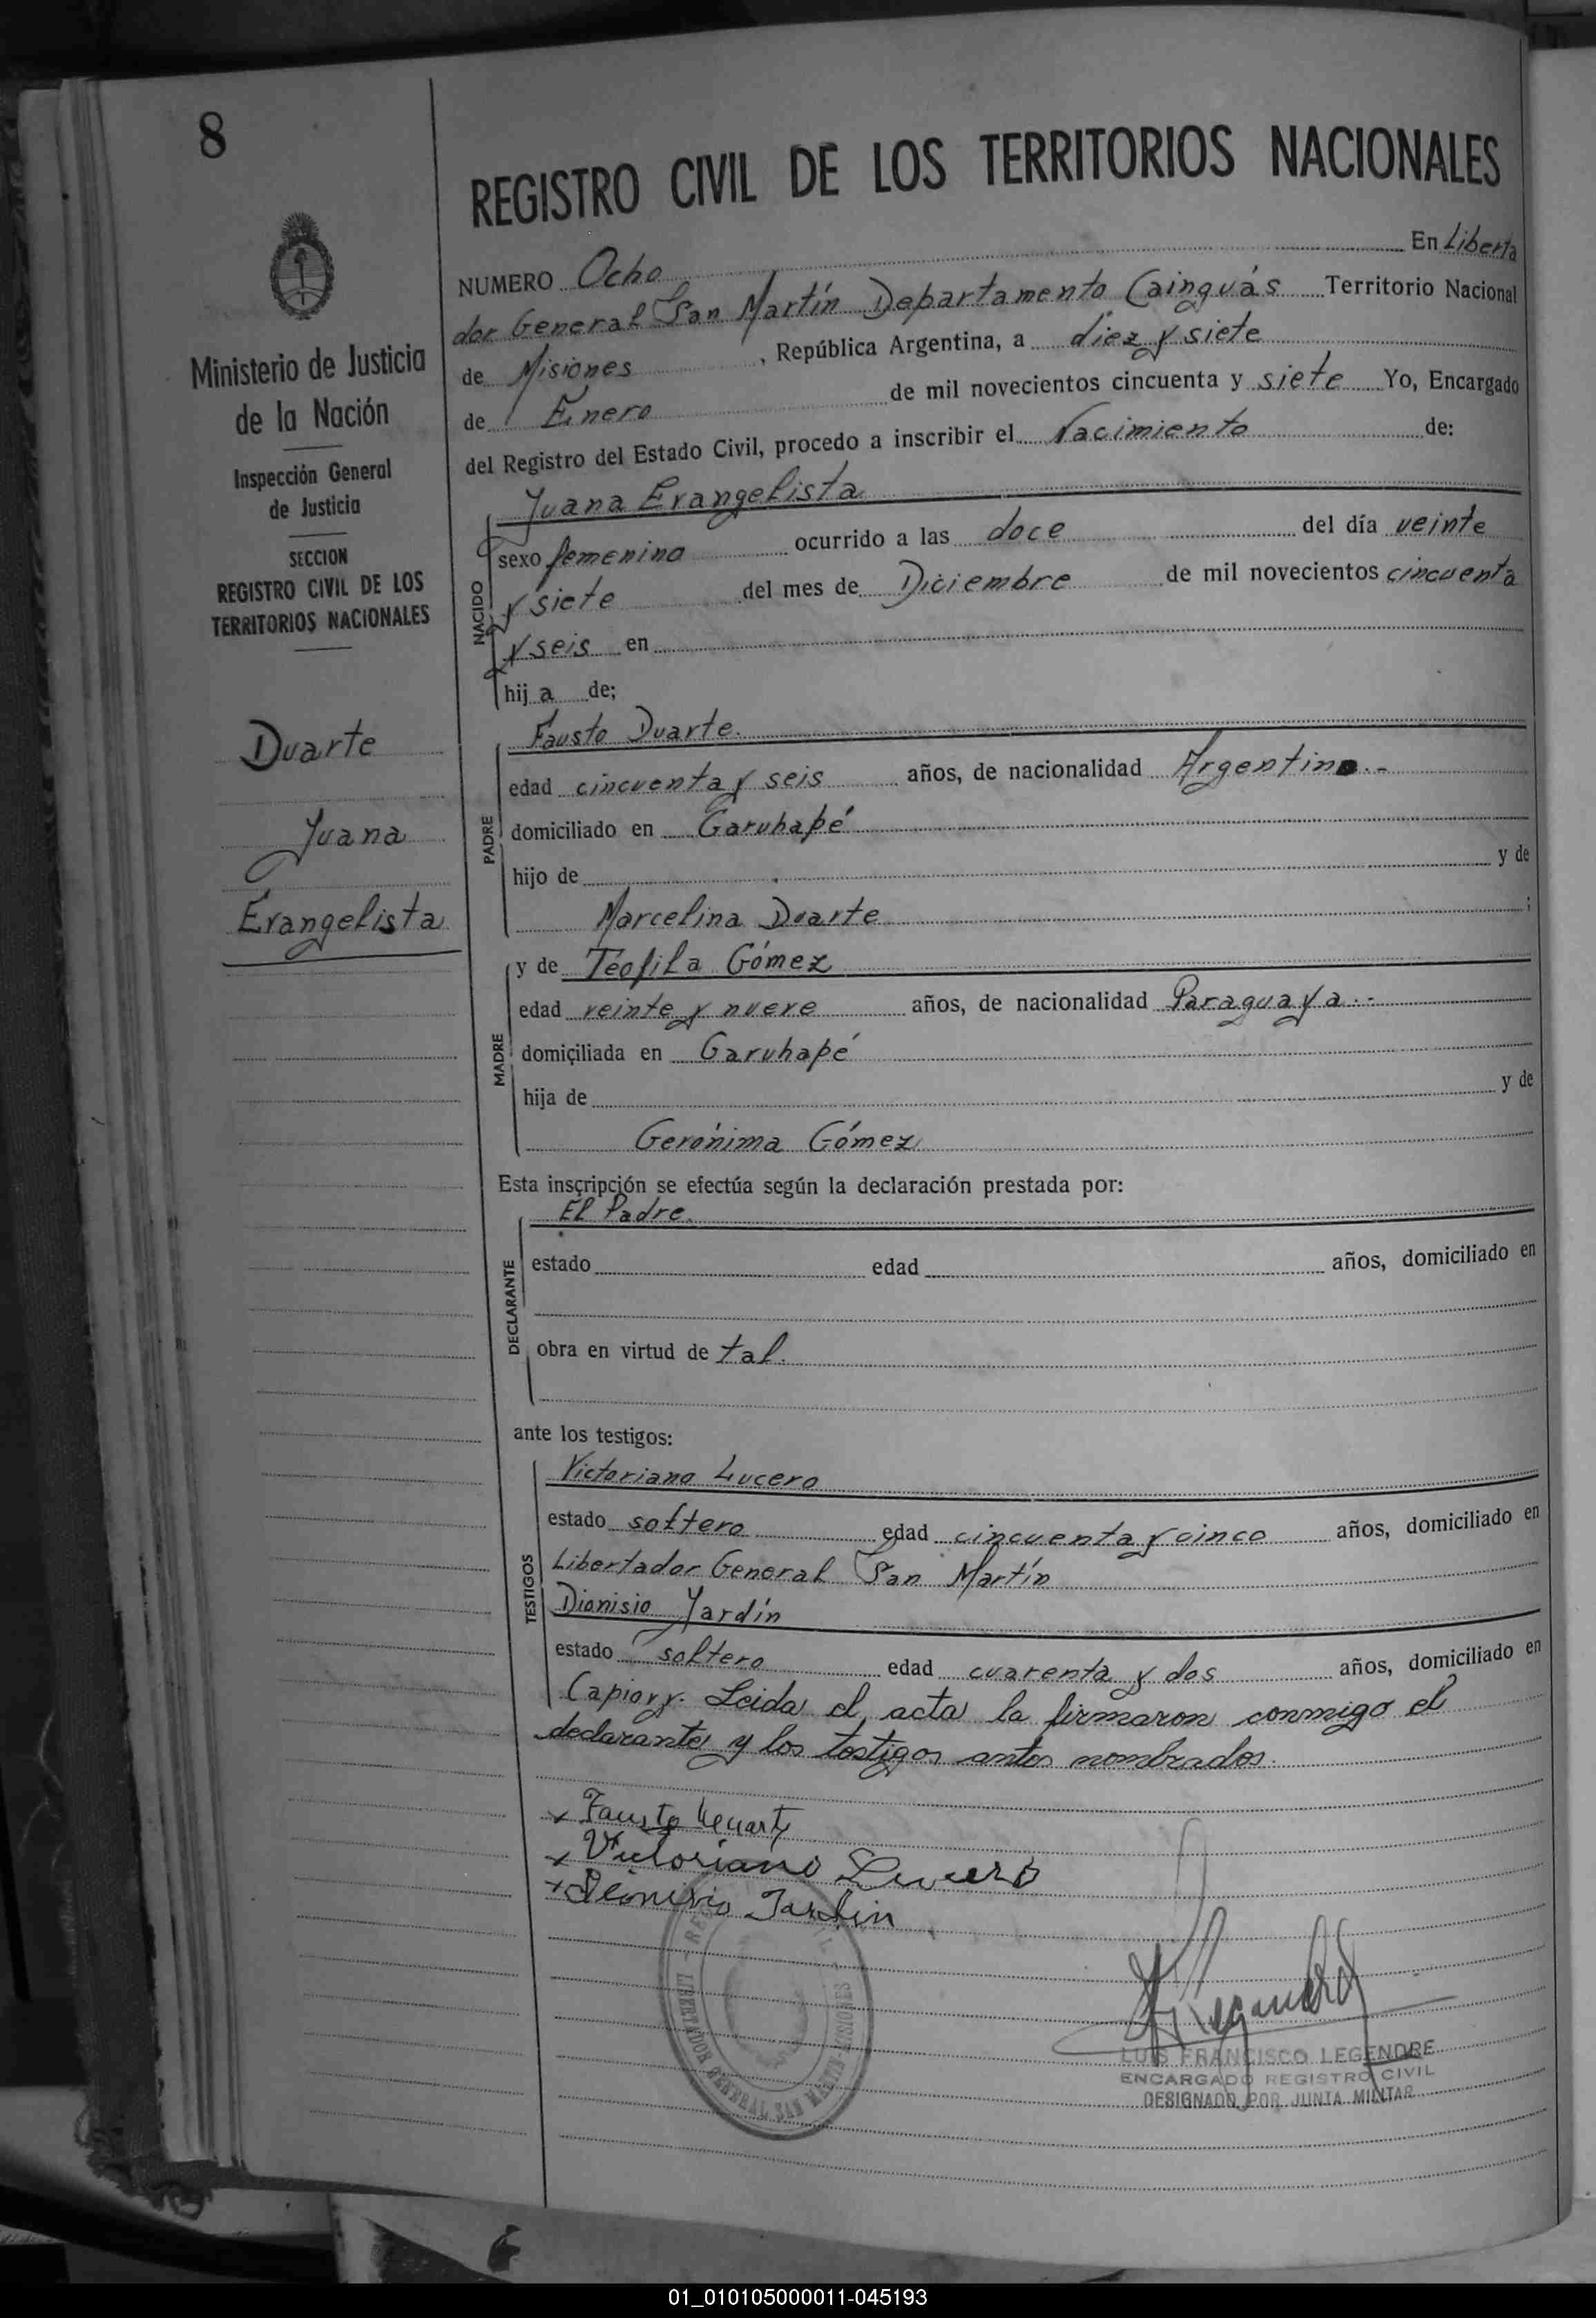 8
Ministerio de Justicia
de la Nación
Inspección General
de Justicia
SECCION
REGISTRO CIVIL DE LOS
TERRITORIOS NACIONALES
Duarte
Juana
Evangelista
REGISTRO CIVIL DE LOS TERRITORIOS NACIONALES
NUMERO Ocho En Liberta
dor General San Martín Departamento Cainguás Territorio Nacional
de Misiones, República Argentina, a diez y siete
de Enero de mil novecientos cincuenta y siete Yo, Encargado
del Registro del Estado Civil, procedo a inscribir el Nacimiento de:
NACIDO
Juana Evangelista
sexo femenino ocurrido a las doce del día veinte
y siete del mes de Diciembre de mil novecientos cincuenta
y seis en
hij a de;
PADRE
Fausto Duarte.
edad cincuenta y seis años, de nacionalidad Argentino.-
domiciliado en Garuhapé
hijo de y de
Marcelina Duarte ;
MADRE
y de Teófila Gómez
edad veinte y nueve años, de nacionalidad Paraguaya.-
domiciliada en Garuhapé
hija de y de
Gerónima Gómez
Esta inscripción se efectúa según la declaración prestada por:
DECLARANTE
El Padre.
estado edad años, domiciliado en
obra en virtud de tal.
ante los testigos:
TESTIGOS
Victoriano Lucero
estado soltero edad cincuenta y cinco años, domiciliado en
Libertador General San Martín
Dionisio Jardín
estado soltero edad cuarenta y dos años, domiciliado en
Capiovy. Leida el acta la firmaron conmigo el
declarante y los testigos antes nombrados.
x Fausto Duarte
x Victoriano Lucero
x Dionisio Jardin
LIBERTADOR GENERAL SAN MARTIN-MISIONES
LUIS FRANCISCO LEGENDRE
ENCARGADO REGISTRO CIVIL
DESIGNADO POR JUNTA MILITAR
01_010105000011-045193